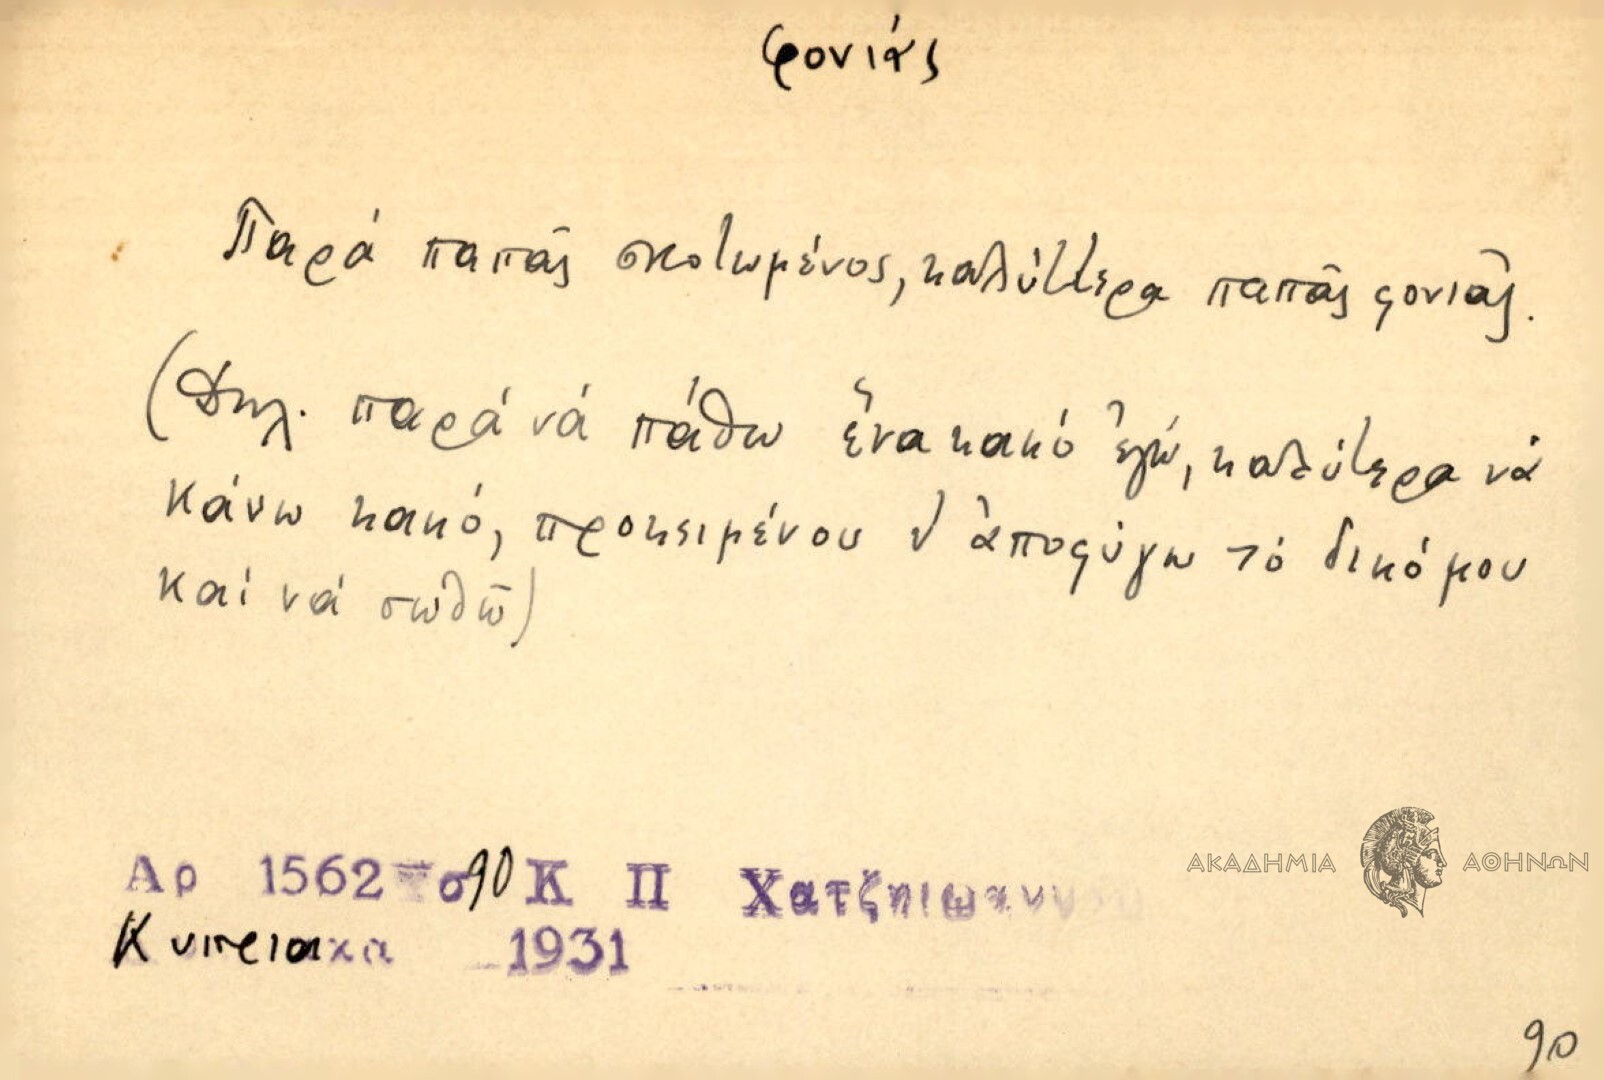 φονιάς
Παρά παπᾶς σκοτωμένος, καλύττερα παπᾶς φονιᾶς.
(Δηλ. παρά νά πάθω ἕνα κακό ἐγώ, καλύτερα νά
κάνω κακό, προκειμένου ν' ἀποφύγω τό δικό μου
καί νά σωθῶ)
Αρ 1562 σ 90 Κ Π Χατζηιωαννου
Κυπριακα 1931
ΑΚΑΔΗΜΙΑ ΑΘΗΝΩΝ
90